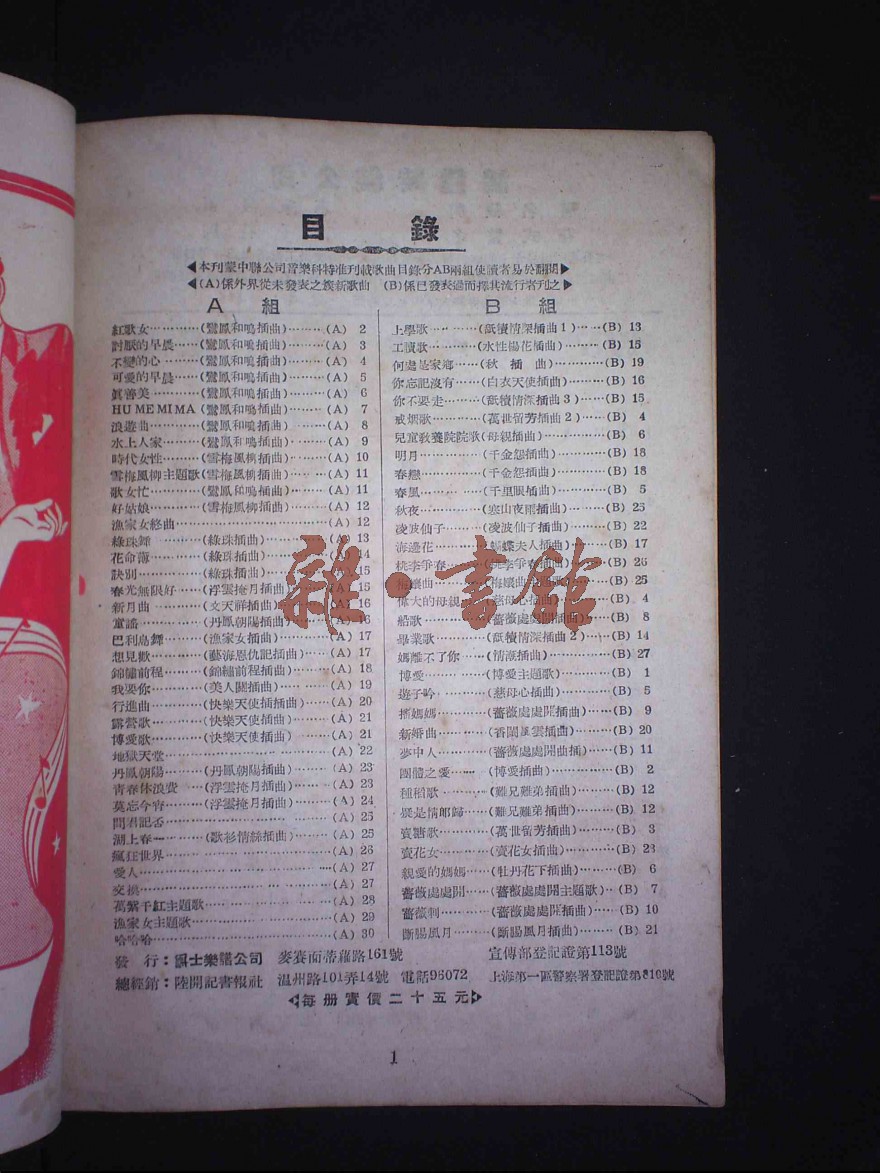 目錄
◀本刊蒙中聯公司音樂科特准刊載歌曲目錄分AB兩組使讀者易於翻閱▶
◀(A)係外界從未發表之簇新歌曲 (B)係已發表過而擇其流行者列之▶
A 組
紅歌女…………(鸞鳳和鳴插曲)……(A) 2
討厭的早晨……(鸞鳳和鳴插曲)……(A) 3
不變的心………(鸞鳳和鳴插曲)……(A) 4
可愛的早晨……(鸞鳳和鳴插曲)……(A) 5
眞善美…………(鸞鳳和鳴插曲)……(A) 6
HU ME MI MA (鸞鳳和鳴插曲)……(A) 7
浪遊曲…………(鸞鳳和鳴插曲)……(A) 8
水上人家………(鸞鳳和鳴插曲)……(A) 9
時代女性………(雪梅風柳插曲)……(A) 10
雪梅風柳主題歌(雪梅風柳插曲)……(A) 11
歌女忙…………(鸞鳳和鳴插曲)……(A) 11
好姑娘…………(雪梅風柳插曲)……(A) 12
漁家女終曲……………………………(A) 12
綠珠舞………(綠珠插曲)………(A) 13
花命薄………(綠珠插曲)………(A) 14
訣別…………(綠珠插曲)………(A) 15
春光無限好……(浮雲掩月插曲)……(A) 15
新月曲…………(文天祥插曲)………(A) 16
童謠……………(丹鳳朝陽插曲)……(A) 16
巴利島舞………(漁家女插曲)………(A) 17
想見歡…………(藝海恩仇記插曲)…(A) 17
錦繡前程………(錦繡前程插曲)……(A) 18
我要你…………(美人關插曲)………(A) 19
行進曲…………(快樂天使插插曲)…(A) 20
露營歌…………(快樂天使插曲)……(A) 21
博愛歌…………(快樂天使插曲)……(A) 21
地獄天堂………………………………(A) 22
丹鳳朝陽………(丹鳳朝陽插曲)……(A) 23
青春休浪費……(浮雲掩月插曲)……(A) 23
莫忘今宵………(浮雲掩月插曲)……(A) 24
問君記否………………………………(A) 25
湖上春…………(歌衫情絲插曲)……(A) 25
瘋狂世界………………………………(A) 26
愛人……………………………………(A) 27
交換……………………………………(A) 27
萬紫千紅主題歌………………………(A) 28
漁家女主題歌…………………………(A) 29
哈哈哈…………………………………(A) 30
B 組
上學歌…………(舐犢情深插曲1)……(B) 13
工讀歌…………(水性楊花插曲)……(B) 15
何處是家鄉……(秋插曲)……(B) 19
你忘記沒有……(白衣天使插曲)……(B) 16
你不要走………(舐犢情深插曲3)……(B) 15
戒烟歌…………(萬世留芳插曲2)……(B) 4
兒童敎養院院歌(母親插曲)…………(B) 6
明月……………(千金怨插曲)………(B) 18
春戀……………(千金怨插曲)………(B) 18
春風……………(千里眼插曲)………(B) 5
秋夜……………(寒山夜雨插曲)……(B) 25
凌波仙子………(凌波仙子插曲)……(B) 22
海邊花…………(蝴蝶夫人插曲)……(B) 17
桃李爭春………(桃李爭春插曲)……(B) 26
梅孃曲…………(梅孃曲主題歌)……(B) 25
偉大的母親……(慈母心插曲)………(B) 4
船歌……………(薔薇處處開插曲)…(B) 8
畢業歌…………(舐犢情深插曲2)……(B) 14
媽離不了你……(情潮插曲)…………(B) 27
博愛……………(博愛主題歌)………(B) 1
遊子吟…………(慈母心插曲)………(B) 5
媽媽…………(薔薇處處開插曲)…(B) 9
新婚曲…………(香閨風雲插曲)……(B) 20
夢中人…………(薔薇處處開曲插)…(B) 11
團體之愛………(博愛插曲)…………(B) 2
種稻歌…………(難兄難弟插曲)……(B) 12
果是情郎歸……(難兄難弟插曲)……(B) 12
賣糖歌…………(萬世留芳插曲)……(B) 3
賣花女…………(賣花女插曲)………(B) 23
親愛的媽媽……(牡丹花下插曲)……(B) 6
薔薇處處開……(薔薇處處開主題歌)…(B) 7
薔薇刺…………(薔薇處處開插曲)…(B) 10
斷腸風月………(斷腸風月插曲)……(B) 21
雜·書館
發行：士樂譜公司 麥賽而蒂羅路161號 宣傳部登記證第113號
總經銷：陸開記書報社 温州路101弄14號 電話96072 上海第一區警察署登記證第819號
◀每册實價二十五元▶
1